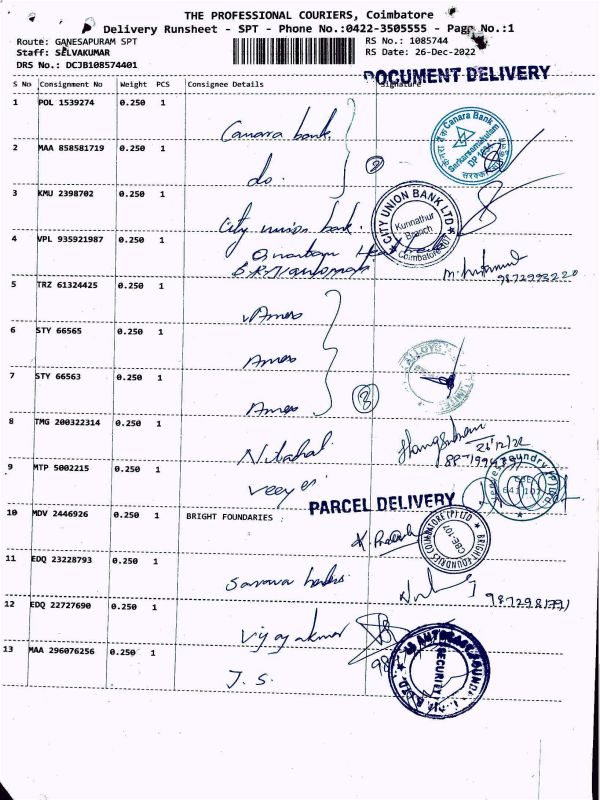 THE PROFESSIONAL COURIERS, Coimbatore
Delivery Runsheet - SPT - Phone No.:0422-3505555 - Page No.:1
Route: GANESAPURAM SPT
RS No.: 1085744
Staff: SELVAKUMAR
RS Date: 26-Dec-2022
DRS No.: DCJB108574401
DOCUMENT DELIVERY
S No Consignment No Weight PCS Consignee Details Signature
1 POL 1539274 0.250 1
Canara bank.
2 MAA 858581719 0.250 1
do.
Canara Bank
Sarkarsamakulam
3 KMU 2398702 0.250 1
City union bank.
CITY UNION BANK LTD
Kunnathur
Branch
Coimbatore
4 VPL 935921987 0.250 1
5 TRZ 61324425 0.250 1
Ames
6 STY 66565 0.250 1
Ames
7 STY 66563 0.250 1
Ames
3
8 TMG 200322314 0.250 1
26/12/22
9 MTP 5002215 0.250 1
Foundry (P) Ltd
641 107
PARCEL DELIVERY
10 MDV 2446926 0.250 1 BRIGHT FOUNDARIES :
BRIGHT FOUNDRIES COIMBATORE (P) LTD
CBE-107
11 EDQ 23228793 0.250 1
12 EDQ 22727690 0.250 1
Vijayakmar
13 MAA 296076256 0.250 1
J. S.
SECURITY